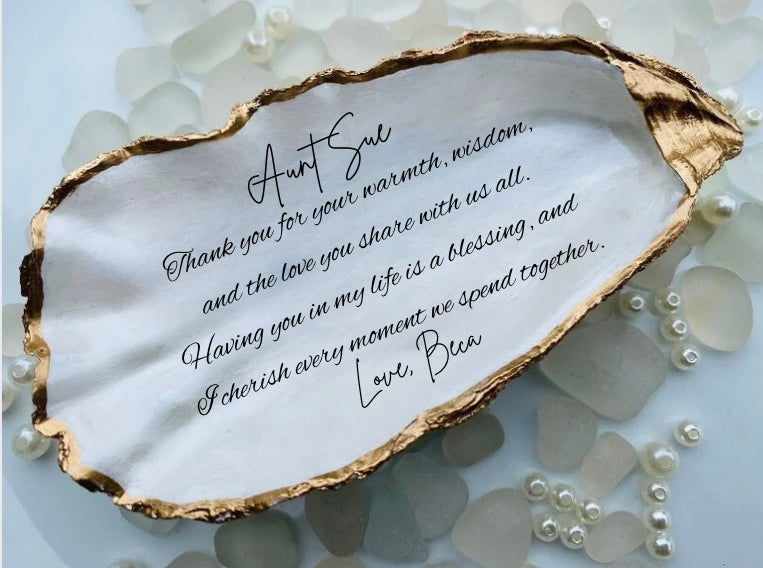 Aunt Sue
Thank you for your warmth, wisdom,
and the love you share with us all.
Having you in my life is a blessing, and
I cherish every moment we spend together.
Love, Beca